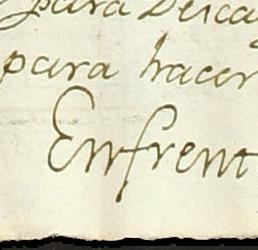 para Desca
para hacer
Enfrent